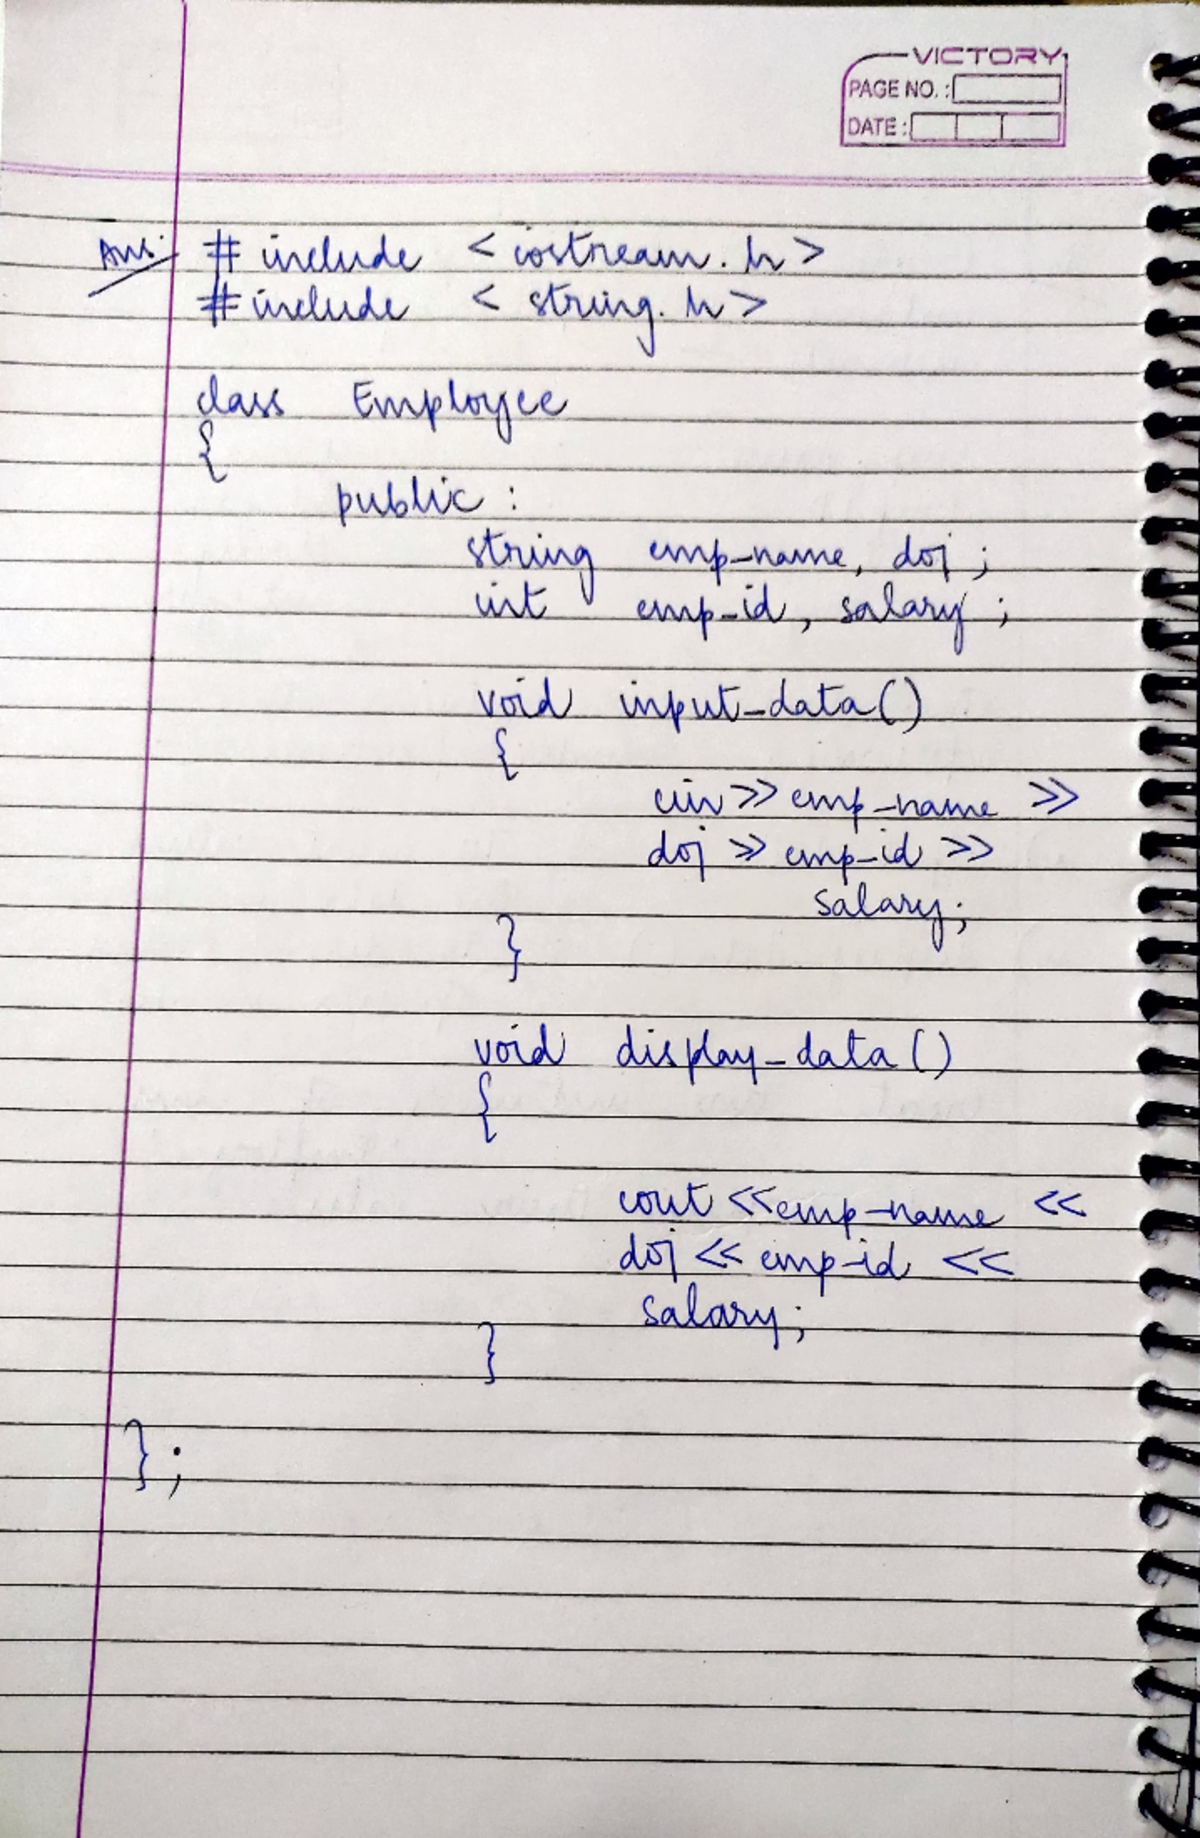 VICTORY
PAGE NO. :
DATE :
Ans:- # include < iostream.h >
# include < string.h >
class Employee
{
public :
string emp_name, doj ;
int emp_id, salary ;
void input_data()
{
cin >> emp_name >>
doj >> emp_id >>
salary;
}
void display_data()
{
cout << emp_name <<
doj << emp_id <<
salary;
}
};